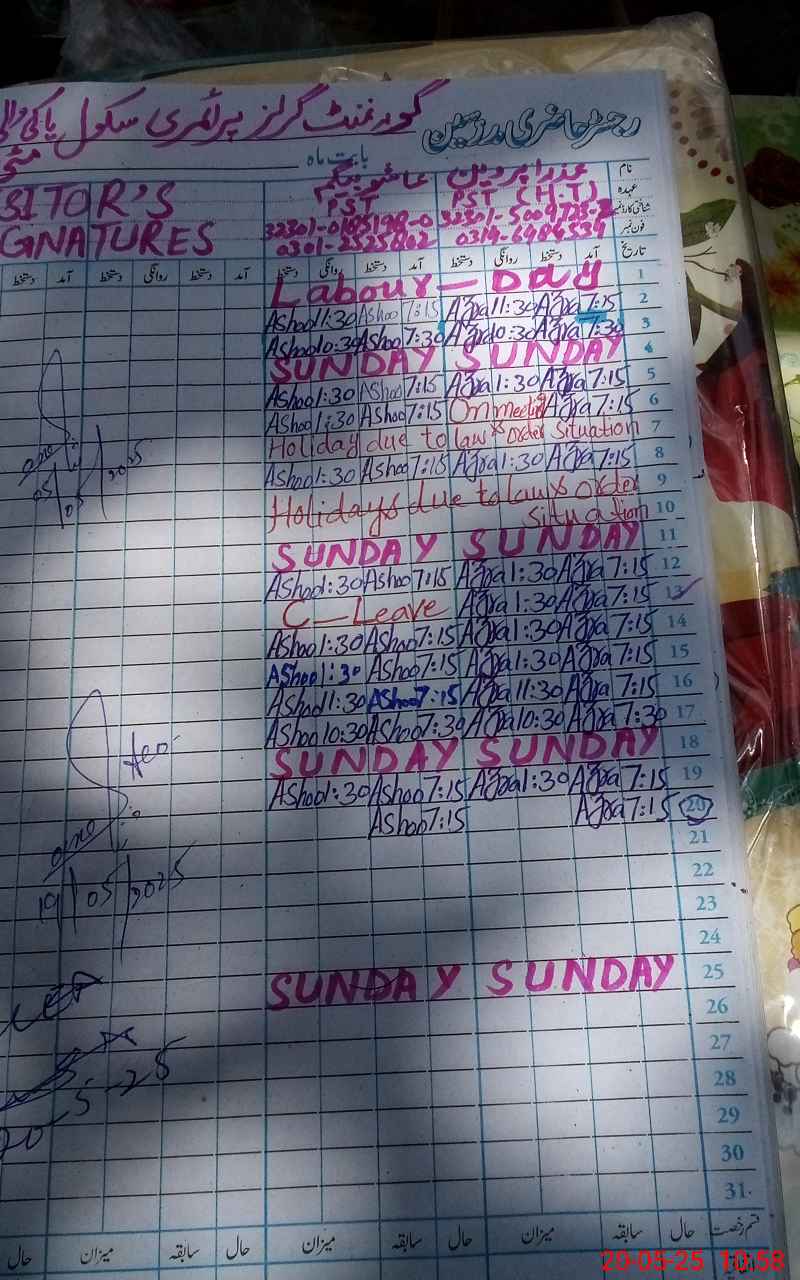 رجسٹر حاضری مدرسین گورنمنٹ گرلز پرائمری سکول
بابت ماہ مئی
نام عذرا پروین عاشو بیگم
عہدہ PST (H.T) PST
شناختی کارڈ نمبر
فون نمبر 0314-6984534 0301-2525862
SITOR'S
GNATURES
تاریخ آمد دستخط روانگی دستخط آمد دستخط روانگی دستخط آمد دستخط روانگی دستخط آمد دستخط
1 Labour - Day
2 Ashoo 1:30 Ashoo 7:15 Azra 11:30 Azra 7:15
3 Ashoo 10:30 Ashoo 7:30 Azra 10:30 Azra 7:30
4 SUNDAY SUNDAY
5 Ashoo 1:30 Ashoo 7:15 Azra 1:30 Azra 7:15
6 Ashoo 1:30 Ashoo 7:15 On meeting Azra 7:15
7 Holiday due to law & order situation
8 Ashoo 1:30 Ashoo 7:15 Azra 1:30 Azra 7:15
9 Holidays due to law & order
10 situation
11 SUNDAY SUNDAY
12 Ashoo 1:30 Ashoo 7:15 Azra 1:30 Azra 7:15
13 C - Leave Azra 1:30 Azra 7:15
14 Ashoo 1:30 Ashoo 7:15 Azra 1:30 Azra 7:15
15 Ashoo 1:30 Ashoo 7:15 Azra 1:30 Azra 7:15
16 Ashoo 11:30 Ashoo 7:15 Azra 11:30 Azra 7:15
17 Ashoo 10:30 Ashoo 7:30 Azra 10:30 Azra 7:30
18 SUNDAY SUNDAY
19 Ashoo 1:30 Ashoo 7:15 Azra 1:30 Azra 7:15
20 Ashoo 7:15 Azra 7:15
21
22
23
24
25 SUNDAY SUNDAY
26
27
28
29
30
31
05/05/2025
19/05/2025
20-5-25
قسم رخصت حال سابقہ میزان حال سابقہ میزان حال سابقہ میزان حال
20-05-25 10:58